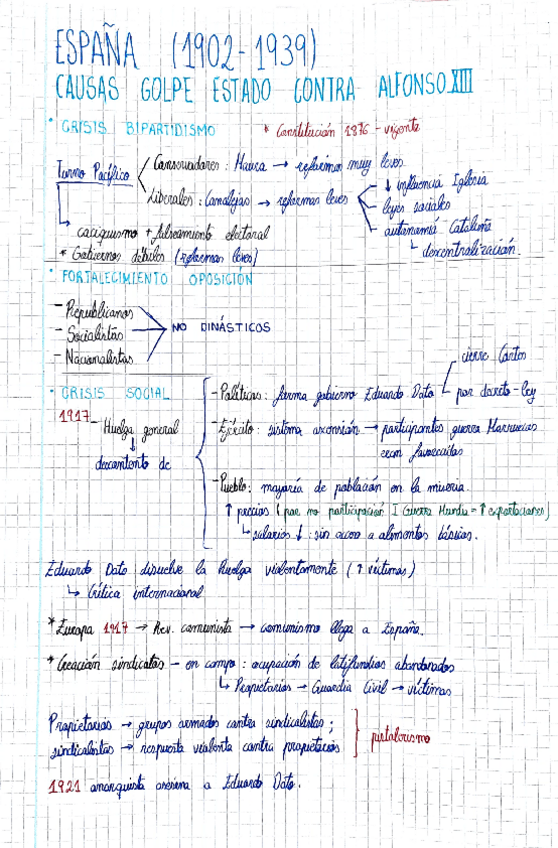 ESPAÑA (1902-1939)
CAUSAS GOLPE ESTADO CONTRA ALFONSO XIII
* CRISIS BIPARTIDISMO * Constitución 1876 - vigente
Turno Pacífico
Conservadores: Maura → reformas muy leves.
Liberales: Canalejas → reformas leves
↓ influencia Iglesia
leyes sociales
autonomía Cataluña
descentralización.
caciquismo + falseamiento electoral
* Gobiernos débiles (reformas leves)
* FORTALECIMIENTO OPOSICIÓN
- Republicanos
- Socialistas
- Nacionalistas
NO DINÁSTICOS
* CRISIS SOCIAL
1917 - Huelga general
↓
descontento de
- Políticos: forma gobierno Eduardo Dato
cierre Cortes
por decreto-ley
- Ejército: sistema ascensión → participantes guerra Marruecos
eran favorecidos
- Pueblo: mayoría de población en la miseria.
↑ precios (por no participación I Guerra Mundial = ↑ exportaciones)
↳ salarios ↓: sin acceso a alimentos básicos.
Eduardo Dato disuelve la huelga violentamente (↑ víctimas)
↳ Crítica internacional
* Europa 1917 → Rev. comunista → comunismo llega a España.
* Creación sindicatos - en campo: ocupación de latifundios abandonados
↳ Propietarios → Guardia Civil → víctimas
Propietarios → grupos armados contra sindicalistas;
sindicalistas → respuesta violenta contra propietarios
pistolerismo
1921 anarquista asesina a Eduardo Dato.